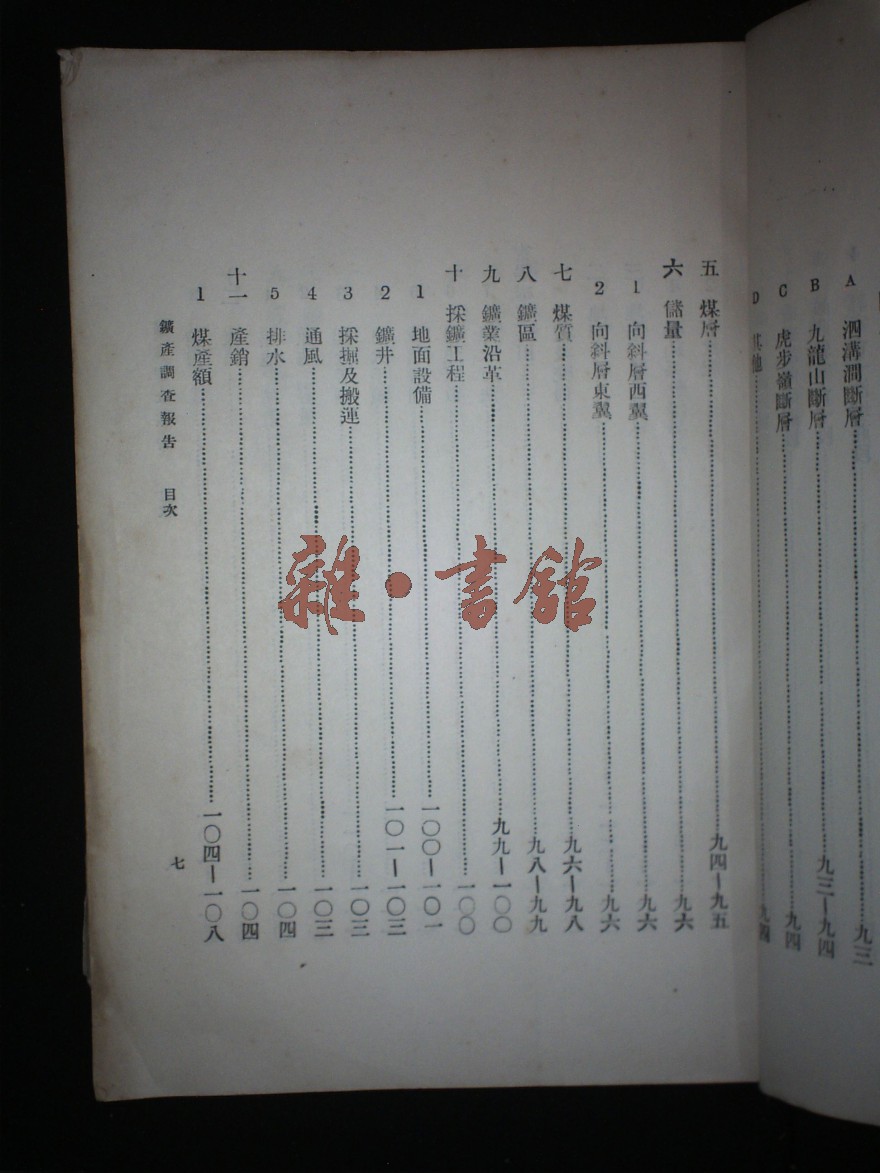 A 泗溝澗斷層……九三
B 九龍山斷層……九三—九四
C 虎步嶺斷層……九四
D 其他……九四
五 煤層……九四—九五
六 儲量……九六
1 向斜層西翼……九六
2 向斜層東翼……九六
七 煤質……九六—九八
八 鑛區……九八—九九
九 鑛業沿革……九九—一〇〇
十 採鑛工程……一〇〇
1 地面設備……一〇〇—一〇一
2 鑛井……一〇一—一〇三
3 採掘及搬運……一〇三
4 通風……一〇三
5 排水……一〇四
十一 產銷……一〇四
1 煤產額……一〇四—一〇八
鑛產調查報告 目次
七
雜·書館